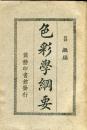 呂澂編
色彩學綱要
商務印書館發行